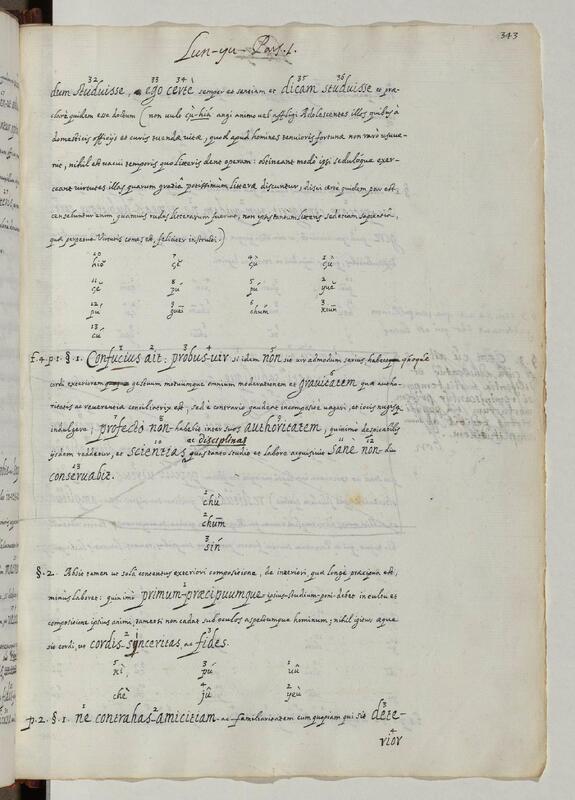 343
Lun-yu. Pars. 1.
32 33 34 35 36
dum studuisse, ego certè semper et sentiam et dicam studuisse et prae-
clarè quidem esse doctum (non nulo çù-hiá angi animo vel affligi Adolescentes illos quibus à
domesticis officijs et curis tuendae vitae, quod apud homines tenuioris fortunae non rarò usuve-
nit, nihil est vacui temporis quo litteris dent operam: obtineant modò ipsi sedulòque exer-
ceant virtutes illas quarum gratiâ potissimùm litterae discuntur, disci certè quidem par est,
censebuntur enim, quamvis rudes litterarum fuerint, non iam tantum litteris sed etiam sapientiâ,
quae perpetuo virtutis conatus est, feliciter instructi.)
10 7 4 1
hiŏ çĕ çù çù
11 8 5 2
çĕ pú pú yuĕ
12 9 6 3
pú guēi chúm kiūn
13
cú
f.4.p.1.§.1. Confucius ait: probus vir si idem non sit vir admodum serius habeatque quoque
cordi exteriorem gestuum motuumque omnium moderationem et gravitatem quae autho-
ritatis ac reverentiae conciliatrix est, sed è contrario gaudeat incompositè vagari, et iocis nugisque
indulgere; profectò non habebit inter suos authoritatem, quinimo despicabilis
ijsdem reddetur, et scientias ac disciplinas quas tanto studio et labore acquisivit sanè non diu
conservabit.
1
chù
2
chūm
3
sín
§.2. Absit tamen ut solâ contentus exteriori compositione, de interiori, quae longè praecipua est,
minùs laboret: quin imo primum praecipuumque ipsius studium poni debet in cultu et
compositione ipsius animi, tametsi non cadat sub oculos aspectumque hominum; nihil igitur aequè
sit cordi, ut cordis synceritas, ac fides.
5 3 1
kì, pú vû
chè jû yeù
p.2.§.1. ne contrahas amicitiam ac familiaritatem cum quopiam qui sit dete-
rior